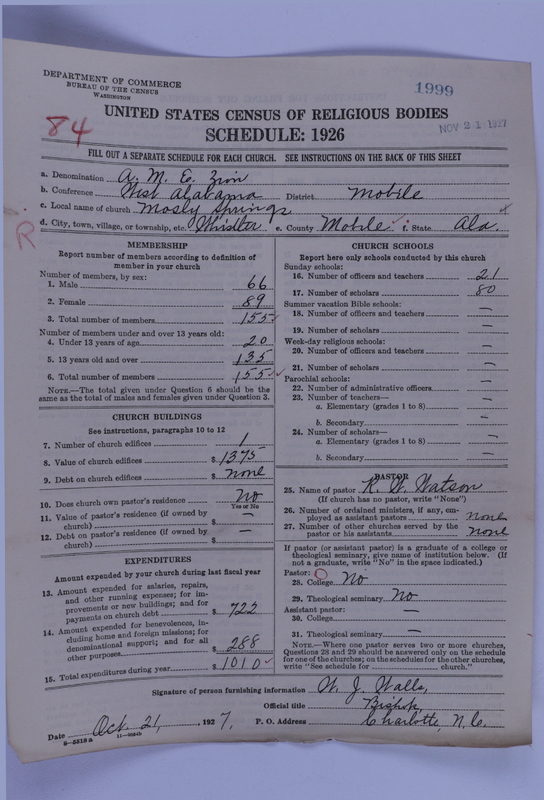 DEPARTMENT OF COMMERCE
BUREAU OF THE CENSUS
WASHINGTON
1999
UNITED STATES CENSUS OF RELIGIOUS BODIES
84
SCHEDULE: 1926
NOV 21 1927
FILL OUT A SEPARATE SCHEDULE FOR EACH CHURCH. SEE INSTRUCTIONS ON THE BACK OF THIS SHEET
a. Denomination A. M. E. Zion
b. Conference West Alabama District Mobile
c. Local name of church Mosly Springs
d. City, town, village, or township, etc. Whistler e. County Mobile f. State Ala.
R
MEMBERSHIP
Report number of members according to definition of member in your church
Number of members, by sex:
1. Male 66
2. Female 89
3. Total number of members 155
Number of members under and over 13 years old:
4. Under 13 years of age 20
5. 13 years old and over 135
6. Total number of members 155
NOTE.—The total given under Question 6 should be
same as the total of males and females given under Question 3.
CHURCH BUILDINGS
See instructions, paragraphs 10 to 12
7. Number of church edifices 1
8. Value of church edifices $ 1375
9. Debt on church edifices $ none
10. Does church own pastor's residence No
Yes or No
11. Value of pastor's residence (if owned by
church) $ —
12. Debt on pastor's residence (if owned by
church) $ —
EXPENDITURES
Amount expended by your church during last fiscal year
13. Amount expended for salaries, repairs,
and other running expenses; for im-
provements or new buildings; and for
payments on church debt $ 722
14. Amount expended for benevolences, in-
cluding home and foreign missions; for
denominational support; and for all
other purposes $ 288
15. Total expenditures during year $ 1010
CHURCH SCHOOLS
Report here only schools conducted by this church
Sunday schools:
16. Number of officers and teachers 21
17. Number of scholars 80
Summer vacation Bible schools:
18. Number of officers and teachers —
19. Number of scholars —
Week-day religious schools:
20. Number of officers and teachers —
21. Number of scholars —
Parochial schools:
22. Number of administrative officers —
23. Number of teachers—
a. Elementary (grades 1 to 8) —
b. Secondary —
24. Number of scholars—
a. Elementary (grades 1 to 8) —
b. Secondary —
PASTOR
25. Name of pastor R. W. Watson
(If church has no pastor, write "None")
26. Number of ordained ministers, if any, em-
ployed as assistant pastors none
27. Number of other churches served by the
pastor or his assistants none
If pastor (or assistant pastor) is a graduate of a college or
theological seminary, give name of institution below. (If
not a graduate, write "No" in the space indicated.)
Pastor:
28. College No
29. Theological seminary No
Assistant pastor:
30. College —
31. Theological seminary —
NOTE.—Where one pastor serves two or more churches,
Questions 28 and 29 should be answered only on the schedule
for one of the churches; on the schedules for the other churches,
write "See schedule for church."
Signature of person furnishing information W. J. Walls,
Official title Bishop
Date Oct 21, 1927, P. O. Address Charlotte, N. C.